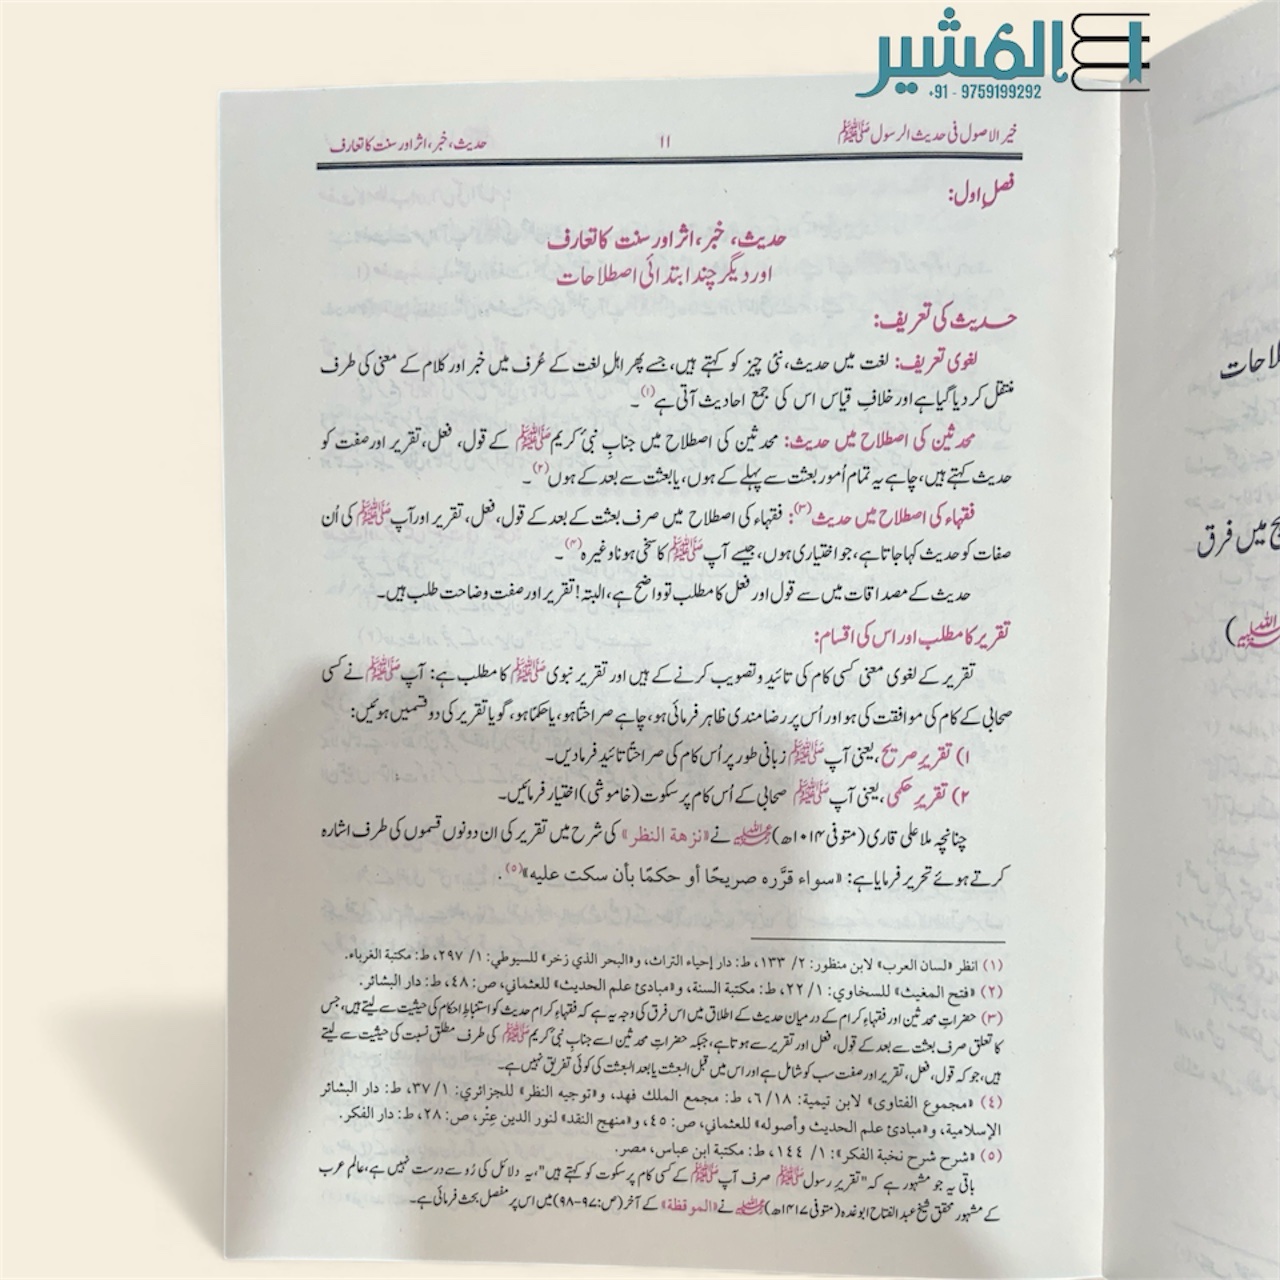 المشیر
+91 - 9759199292
خیر الاصول فی حدیث الرسول ﷺ ۱۱ حدیث، خبر، اثر اور سنت کا تعارف
فصلِ اول:
حدیث، خبر، اثر اور سنت کا تعارف
اور دیگر چند ابتدائی اصطلاحات
حدیث کی تعریف:
لغوی تعریف: لغت میں حدیث، نئی چیز کو کہتے ہیں، جسے پھر اہلِ لغت کے عُرف میں خبر اور کلام کے معنی کی طرف
منتقل کر دیا گیا ہے اور خلافِ قیاس اس کی جمع احادیث آتی ہے(۱)۔
محدثین کی اصطلاح میں حدیث: محدثین کی اصطلاح میں جنابِ نبیٔ کریم ﷺ کے قول، فعل، تقریر اور صفت کو
حدیث کہتے ہیں، چاہے یہ تمام اُمور بعثت سے پہلے کے ہوں، یا بعثت سے بعد کے ہوں(۲)۔
فقہاء کی اصطلاح میں حدیث(۳): فقہاء کی اصطلاح میں صرف بعثت کے بعد کے قول، فعل، تقریر اور آپ ﷺ کی اُن
صفات کو حدیث کہا جاتا ہے، جو اختیاری ہوں، جیسے آپ ﷺ کا سخی ہونا وغیرہ(۴)۔
حدیث کے مصداقات میں سے قول اور فعل کا مطلب تو واضح ہے، البتہ! تقریر اور صفت وضاحت طلب ہیں۔
تقریر کا مطلب اور اس کی اقسام:
تقریر کے لغوی معنی کسی کام کی تائید و تصویب کرنے کے ہیں اور تقریرِ نبوی ﷺ کا مطلب ہے: آپ ﷺ نے کسی
صحابی کے کام کی موافقت کی ہو اور اُس پر رضامندی ظاہر فرمائی ہو، چاہے صراحتًا ہو، یا حکمًا ہو، گویا تقریر کی دو قسمیں ہوئیں:
۱) تقریرِ صریح، یعنی آپ ﷺ زبانی طور پر اُس کام کی صراحتًا تائید فرما دیں۔
۲) تقریرِ حکمی، یعنی آپ ﷺ صحابی کے اُس کام پر سکوت (خاموشی) اختیار فرمائیں۔
چنانچہ ملا علی قاری (متوفی ۱۰۱۴ھ) رحمۃ اللہ علیہ نے «نزهة النظر» کی شرح میں تقریر کی ان دونوں قسموں کی طرف اشارہ
کرتے ہوئے تحریر فرمایا ہے: «سواء قرَّره صريحًا أو حكمًا بأن سكت عليه»(۵).
(١) انظر «لسان العرب» لابن منظور: ٢/ ١٣٣، ط: دار إحياء التراث، و«البحر الذي زخر» للسيوطي: ١/ ٢٩٧، ط: مكتبة الغرباء.
(٢) «فتح المغيث» للسخاوي: ١/ ٢٢، ط: مكتبة السنة، و«مبادئ علم الحديث» للعثماني، ص: ٤٨، ط: دار البشائر.
(۳) حضراتِ محدثین اور فقہاءِ کرام کے درمیان حدیث کے اطلاق میں اس فرق کی وجہ یہ ہے کہ فقہاءِ کرام حدیث کو استنباطِ احکام کی حیثیت سے لیتے ہیں، جس
کا تعلق صرف بعثت سے بعد کے قول، فعل اور تقریر سے ہوتا ہے، جبکہ حضراتِ محدثین اسے جنابِ نبیٔ کریم ﷺ کی طرف مطلق نسبت کی حیثیت سے لیتے
ہیں، جو کہ قول، فعل، تقریر اور صفت سب کو شامل ہے اور اس میں قبل البعثت یا بعد البعثت کی کوئی تفریق نہیں ہے۔
(٤) «مجموع الفتاوى» لابن تيمية: ١٨/ ٦، ط: مجمع الملك فهد، و«توجيه النظر» للجزائري: ١/ ٣٧، ط: دار البشائر
الإسلامية، و«مبادئ علم الحديث وأصوله» للعثماني، ص: ٤٥، و«منهج النقد» لنور الدين عِتْر، ص: ٢٨، ط: دار الفكر.
(٥) «شرح شرح نخبة الفكر»: ١/ ١٤٤، ط: مكتبة ابن عباس، مصر.
باقی یہ جو مشہور ہے کہ "تقریرِ رسول ﷺ صرف آپ ﷺ کے کسی کام پر سکوت کو کہتے ہیں"، یہ دلائل کی رُو سے درست نہیں ہے، عالمِ عرب
کے مشہور محقق شیخ عبد الفتاح ابو غدہ (متوفی ۱۴۱۷ھ) رحمۃ اللہ علیہ نے «الموقظة» کے آخر (ص: ۹۷-۹۸) میں اس پر مفصل بحث فرمائی ہے۔
میں فرق